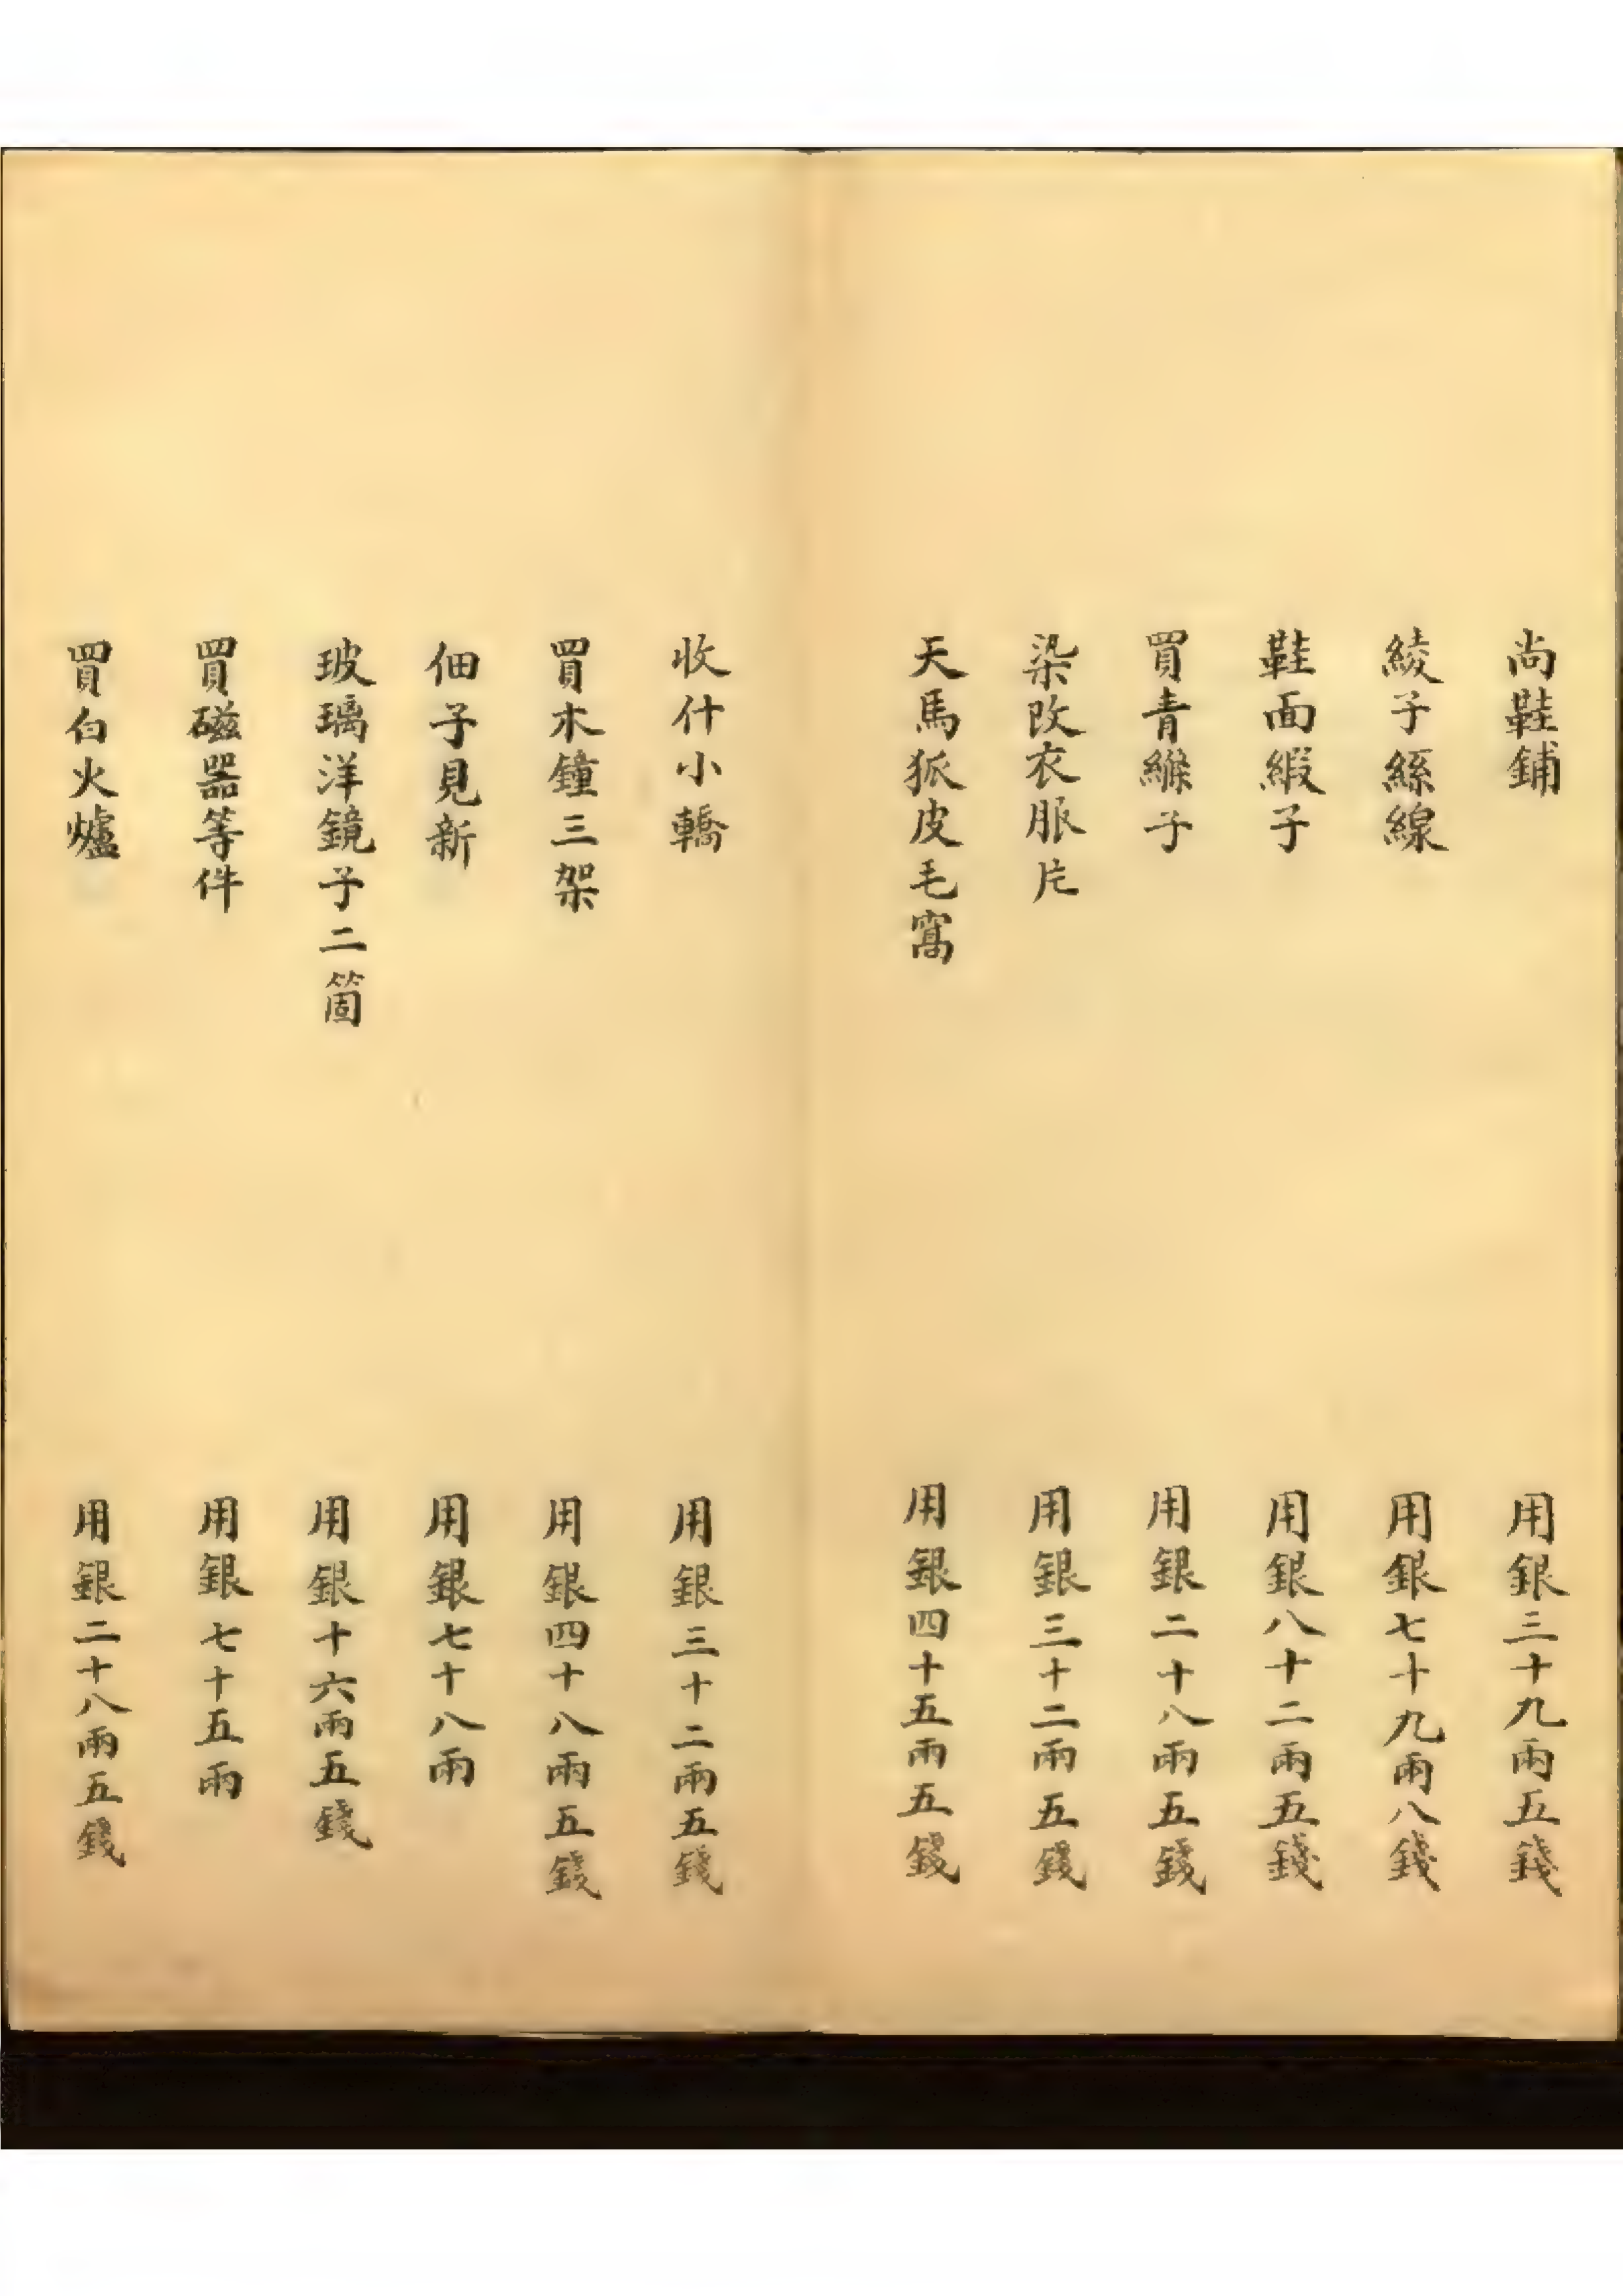 尚鞋鋪 用銀三十九兩五錢
綾子絲線 用銀七十九兩八錢
鞋面緞子 用銀八十二兩五錢
買青縧子 用銀二十八兩五錢
染改衣服片 用銀三十二兩五錢
天馬狐皮毛窩 用銀四十五兩五錢
收什小轎 用銀三十二兩五錢
買木鐘三架 用銀四十八兩五錢
佃子見新 用銀七十八兩
玻璃洋鏡子二箇 用銀十六兩五錢
買磁器等件 用銀七十五兩
買白火爐 用銀二十八兩五錢